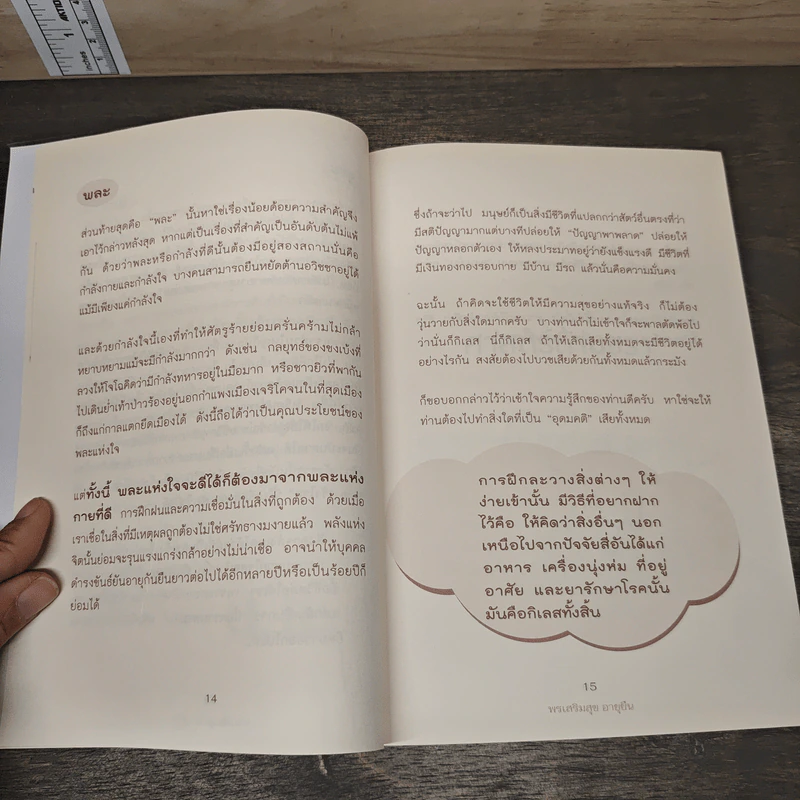 พละ
ส่วนท้ายสุดคือ “พละ” นั้นหาใช่เรื่องน้อยด้อยความสำคัญจึง
เอาไว้กล่าวหลังสุด หากแต่เป็นเรื่องที่สำคัญเป็นอันดับต้นไม่แพ้
กัน ด้วยว่าพละหรือกำลังที่ดีนั้นต้องมีอยู่สองสถานนั่นคือ
กำลังกายและกำลังใจ บางคนสามารถยืนหยัดต้านอวิชชาอยู่ได้
แม้มีเพียงแค่กำลังใจ
และด้วยกำลังใจนี้เองที่ทำให้ศัตรูร้ายย่อมครั่นคร้ามไม่กล้า
หยาบหยามแม้จะมีกำลังมากกว่า ดังเช่น กลยุทธ์ของขงเบ้งที่
ลวงให้โจโฉคิดว่ามีกำลังทหารอยู่ในมือมาก หรือชาวยิวที่พากัน
ไปเดินย่ำเท้าป่าวร้องอยู่นอกกำแพงเมืองเจริโคจนในที่สุดเมือง
ก็ถึงแก่กาลแตกยึดเมืองได้ ดังนี้ถือได้ว่าเป็นคุณประโยชน์ของ
พละแห่งใจ
แต่ทั้งนี้ พละแห่งใจจะดีได้ก็ต้องมาจากพละแห่ง
กายที่ดี การฝึกฝนและความเชื่อมั่นในสิ่งที่ถูกต้อง ด้วยเมื่อ
เราเชื่อในสิ่งที่มีเหตุผลถูกต้องไม่ใช่ศรัทธางมงายแล้ว พลังแห่ง
จิตนั้นย่อมจะรุนแรงแกร่งกล้าอย่างไม่น่าเชื่อ อาจนำให้บุคคล
ดำรงขันธ์ยันอายุกันยืนยาวต่อไปได้อีกหลายปีหรือเป็นร้อยปีก็
ย่อมได้
14
ซึ่งถ้าจะว่าไป มนุษย์ก็เป็นสิ่งมีชีวิตที่แปลกกว่าสัตว์อื่นตรงที่ว่า
มีสติปัญญามากแต่บางทีปล่อยให้ “ปัญญาพาพลาด” ปล่อยให้
ปัญญาหลอกตัวเอง ให้หลงประมาทอยู่ว่ายังแข็งแรงดี มีชีวิตที่
มีเงินทองกองรอบกาย มีบ้าน มีรถ แล้วนั่นคือความมั่นคง
ฉะนั้น ถ้าคิดจะใช้ชีวิตให้มีความสุขอย่างแท้จริง ก็ไม่ต้อง
วุ่นวายกับสิ่งใดมากครับ บางท่านถ้าไม่เข้าใจก็จะพาลตัดพ้อไป
ว่านั่นก็กิเลส นี่ก็กิเลส ถ้าให้เลิกเสียทั้งหมดจะมีชีวิตอยู่ได้
อย่างไรกัน สงสัยต้องไปบวชเสียด้วยกันทั้งหมดแล้วกระมัง
ก็ขอบอกกล่าวไว้ว่าเข้าใจความรู้สึกของท่านดีครับ หาใช่จะให้
ท่านต้องไปทำสิ่งใดที่เป็น “อุดมคติ” เสียทั้งหมด
การฝึกละวางสิ่งต่างๆ ให้
ง่ายเข้านั้น มีวิธีที่อยากฝาก
ไว้คือ ให้คิดว่าสิ่งอื่นๆ นอก
เหนือไปจากปัจจัยสี่อันได้แก่
อาหาร เครื่องนุ่งห่ม ที่อยู่
อาศัย และยารักษาโรคนั้น
มันคือกิเลสทั้งสิ้น
15
พรเสริมสุข อายุยืน
inches
1
2
3